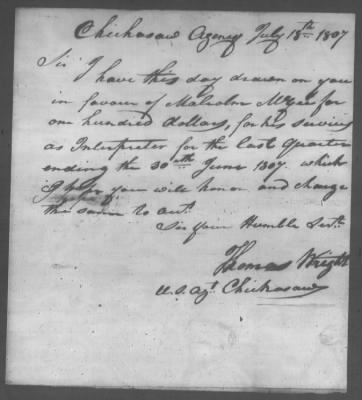 Chickasaw Agency July 18th 1807
Sir I have this day drawn on you
in favour of Malcolm McGee for
one hundred dollars, for his services
as Interpreter for the last Quarter
ending the 30th June 1807. which
I hope you will honor and charge
the same to act.
Sir your Humble Servt.
Thomas Wright
U.S. Agt. Chickasaws